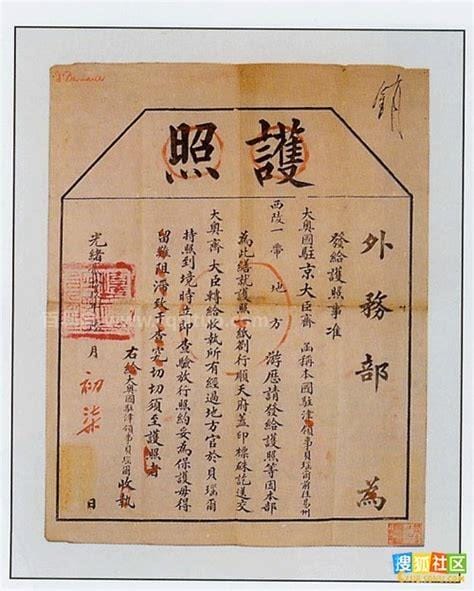 銷
護照
外務部 為
發給護照事准
大奧國駐京大臣齋 函稱本國駐津領事貝瑙爾前往易州
西陵一帶地方 游歷請發給護照等因本部
為此繕就護照一紙劄行順天府蓋印標硃訖送交
大奧齋 大臣轉給收執所有經過地方官於貝瑙爾
持照到境時立即查驗放行照約妥為保護毋得
留難阻滯致干查究切切須至護照者
右給大奧國駐津領事貝瑙爾收執
光緒 年 月初柒日
搜狐社区